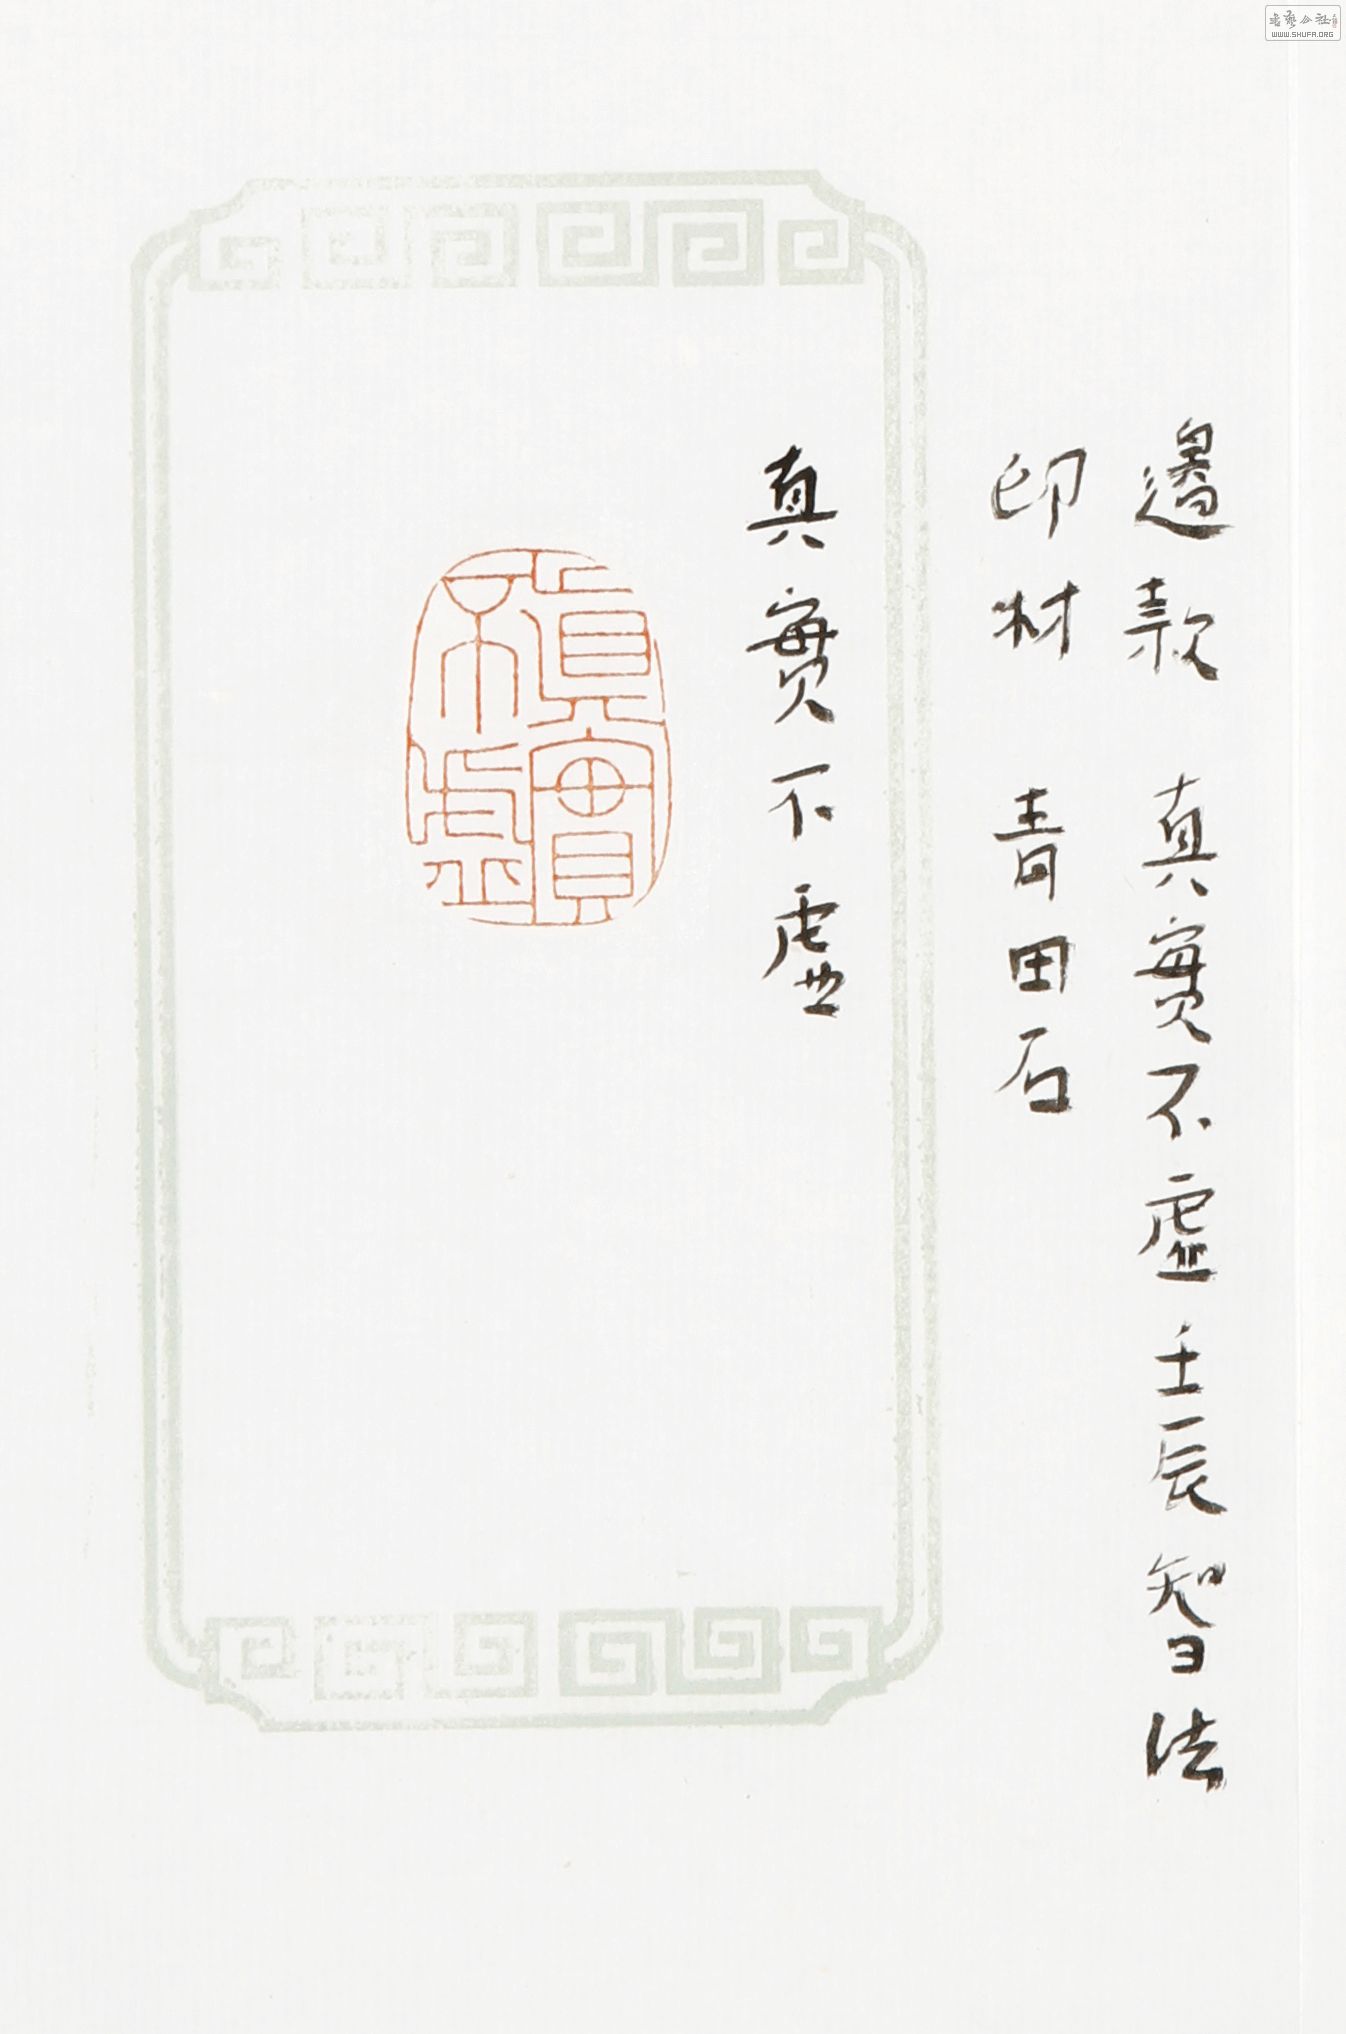 書藝公社
WWW.SHUFA.ORG
邊款 真實不虛壬辰智法
印材 青田石
真實不虛
真實不虛